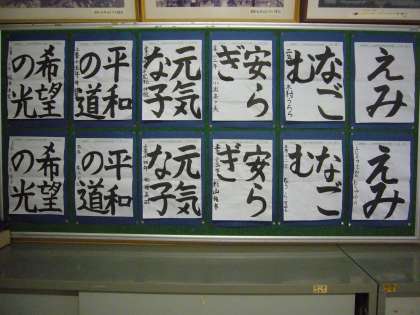 えみ
なご
む
安ら
ぎ
元気
な子
平和
の道
希望
の光
えみ
なご
む
安ら
ぎ
元気
な子
平和
の道
希望
の光